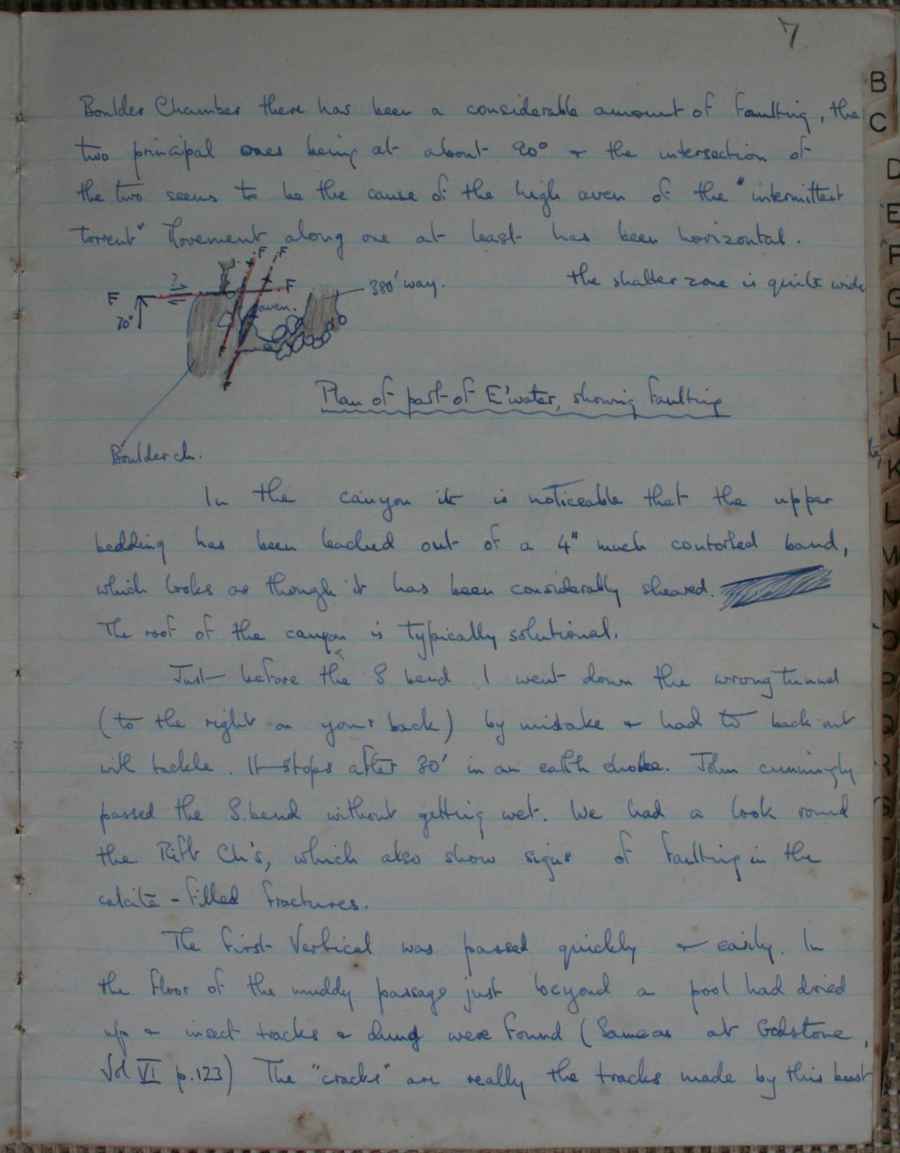 7
Boulder Chamber there has been a considerable amount of faulting, the
two principal ones being at about 90° & the intersection of
the two seems to be the cause of the high aven of the "intermittent
torrent" Movement along one at least has been horizontal.
the shatter zone is quite wide
F F
?
F F
380' way.
aven.
70°
Plan of part of E'water, showing Faulting
Boulder ch.
In the canyon it is noticeable that the upper
bedding has been leached out of a 4" much contorted band,
which looks as though it has been considerably sheared.
The roof of the canyon is typically solutional.
Just before the S bend I went down the wrong tunnel
(to the right on your back) by mistake & had to back out
with tackle. It stops after 30' in an earth choke. John cunningly
passed the S. bend without getting wet. We had a look round
the Rift Ch's, which also show signs of faulting in the
calcite-filled fractures.
The First Vertical was passed quickly & easily. In
the floor of the muddy passage just beyond a pool had dried
up & insect tracks & dung were found (Same as at Godstone,
Vol VI p.123) The "cracks" are really the tracks made by this beast
B
C
D
E
F
G
H
I
J
K
L
M
N
O
P
Q
R
S